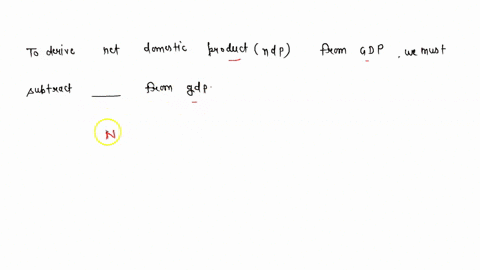 To derive net domestic product (ndp) from GDP, we must
subtract ___ from gdp.
N